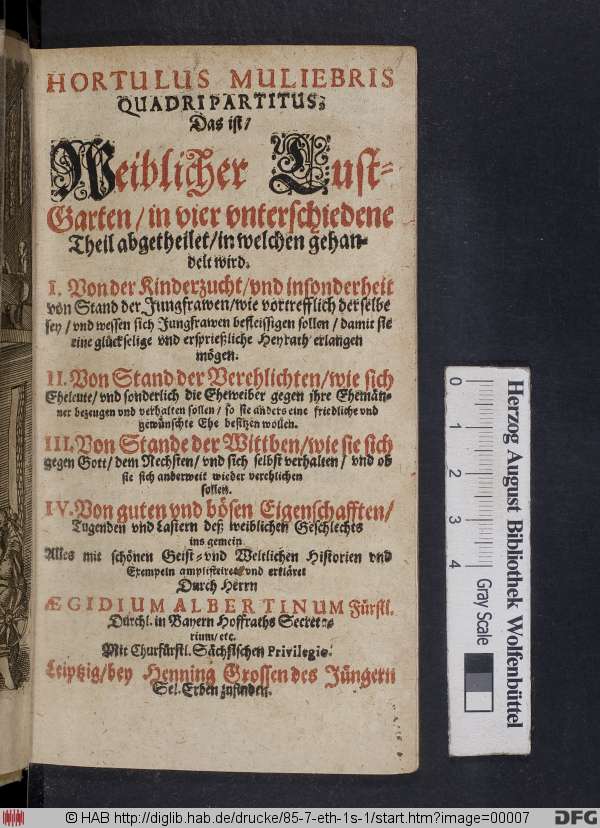 HORTULUS MULIEBRIS
QUADRIPARTITUS;
Das ist/
Weiblicher Lust-
Garten/ in vier vnterschiedene
Theil abgetheilet/ in welchen gehan-
delt wird.
I. Von der Kinderzucht/ vnd insonderheit
von Stand der Jungfrawen/ wie vortrefflich derselbe
sey/ vnd wessen sich Jungfrawen befleissigen sollen/ damit sie
eine glückselige vnd ersprießliche Heyrath erlangen
mögen.
II. Von Stand der Verehlichten/ wie sich
Eheleute/ vnd sonderlich die Eheweiber gegen ihre Ehemän-
ner bezeugen vnd verhalten sollen/ so sie anders eine friedliche vnd
gewünschte Ehe besitzen wollen.
III. Von Stande der Wittben/ wie sie sich
gegen Gott/ dem Nechsten/ vnd sich selbst verhalten/ vnd ob
sie sich anderweit wieder verehlichen
sollen.
IV. Von guten vnd bösen Eigenschafften/
Tugenden vnd Lastern deß weiblichen Geschlechts
ins gemein
Alles mit schönen Geist- vnd Weltlichen Historien vnd
Exempeln amplificiret vnd erkläret
Durch Herrn
ÆGIDIUM ALBERTINUM Fürstl.
Durchl. in Bayern Hoffraths Secreta-
rium/ etc.
Mit Churfürstl. Sächsischen Privilegio.
Leipzig/ bey Henning Grossen des Jüngern
Sel. Erben zufinden.
0 1 2 3 4
Gray Scale
Herzog August Bibliothek Wolfenbüttel
© HAB http://diglib.hab.de/drucke/85-7-eth-1s-1/start.htm?image=00007
DFG